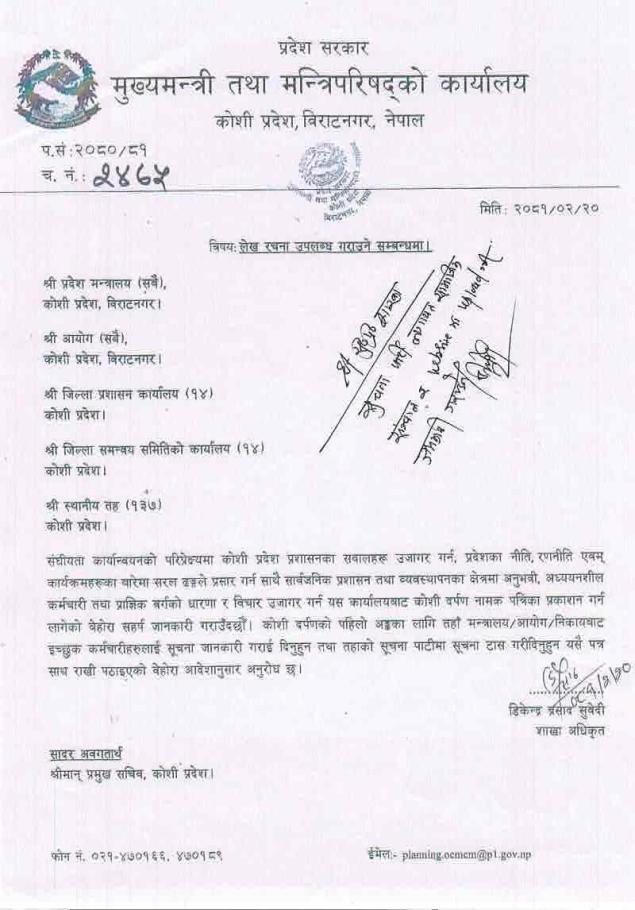 प्रदेश सरकार
मुख्यमन्त्री तथा मन्त्रिपरिषद्को कार्यालय
कोशी प्रदेश, विराटनगर, नेपाल
प.सं:२०८०/८१
च. नं.: २४६५
मिति: २०८१/०२/२०
विषय: लेख रचना उपलब्ध गराउने सम्बन्धमा।
श्री प्रदेश मन्त्रालय (सबै),
कोशी प्रदेश, विराटनगर।
श्री आयोग (सबै),
कोशी प्रदेश, विराटनगर।
श्री जिल्ला प्रशासन कार्यालय (१४)
कोशी प्रदेश।
श्री जिल्ला समन्वय समितिको कार्यालय (१४)
कोशी प्रदेश।
श्री स्थानीय तह (१३७)
कोशी प्रदेश।
सूचना पाटी लगायत सामाजिक
सञ्जाल र website मा upload गरी
संघीयता कार्यान्वयनको परिप्रेक्ष्यमा कोशी प्रदेश प्रशासनका सवालहरू उजागर गर्न, प्रदेशका नीति, रणनीति एवम्
कार्यक्रमहरूका बारेमा सरल ढङ्गले प्रसार गर्न साथै सार्वजनिक प्रशासन तथा व्यवस्थापनका क्षेत्रमा अनुभवी, अध्ययनशील
कर्मचारी तथा प्राज्ञिक बर्गको धारणा र विचार उजागर गर्न यस कार्यालयबाट कोशी दर्पण नामक पत्रिका प्रकाशन गर्न
लागेको बेहोरा सहर्ष जानकारी गराउँदछौं। कोशी दर्पणको पहिलो अङ्कका लागि तहाँ मन्त्रालय/आयोग/निकायबाट
इच्छुक कर्मचारीहरुलाई सूचना जानकारी गराई दिनुहुन तथा तहाको सूचना पाटीमा सूचना टास गरीदिनुहुन यसै पत्र
साथ राखी पठाइएको बेहोरा आदेशानुसार अनुरोध छ।
डिकेन्द्र प्रसाद सुवेदी
शाखा अधिकृत
सादर अवगतार्थ
श्रीमान् प्रमुख सचिव, कोशी प्रदेश।
फोन नं. ०२१-४७०१६६, ४७०१८९
ईमेल:- planning.ocmcm@p1.gov.np